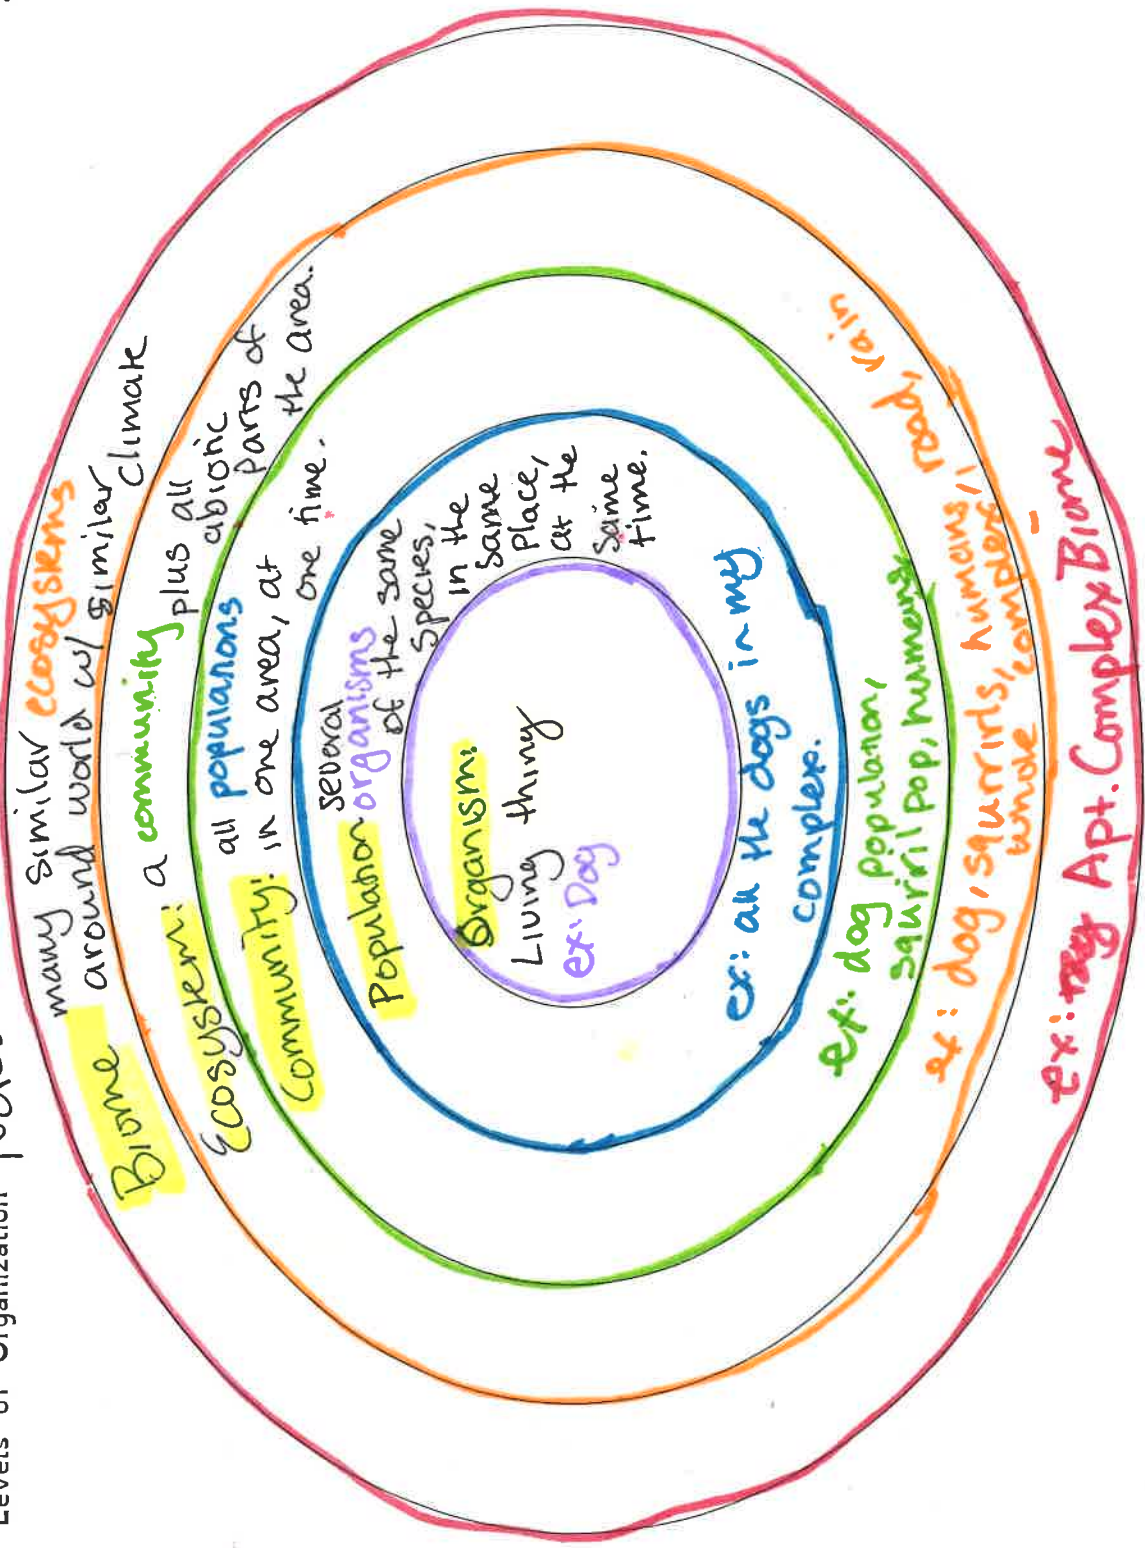 Levels of Organization
Biome
many similar ecosystems
around world w/ similar
climate
Ecosystem: a community plus all
abiotic
parts of
the area.
Community: all populations
in one area, at
one time.
Population several
organisms
of the same
species,
in the
same
place,
at the
same
time.
Organism:
Living thing
ex: Dog
ex: all the dogs in my
complex.
ex: dog population,
squirril pop, humans
ex: dog, squrrirls, humans, road, rain
whole complex
ex: Apt. Complex Biome